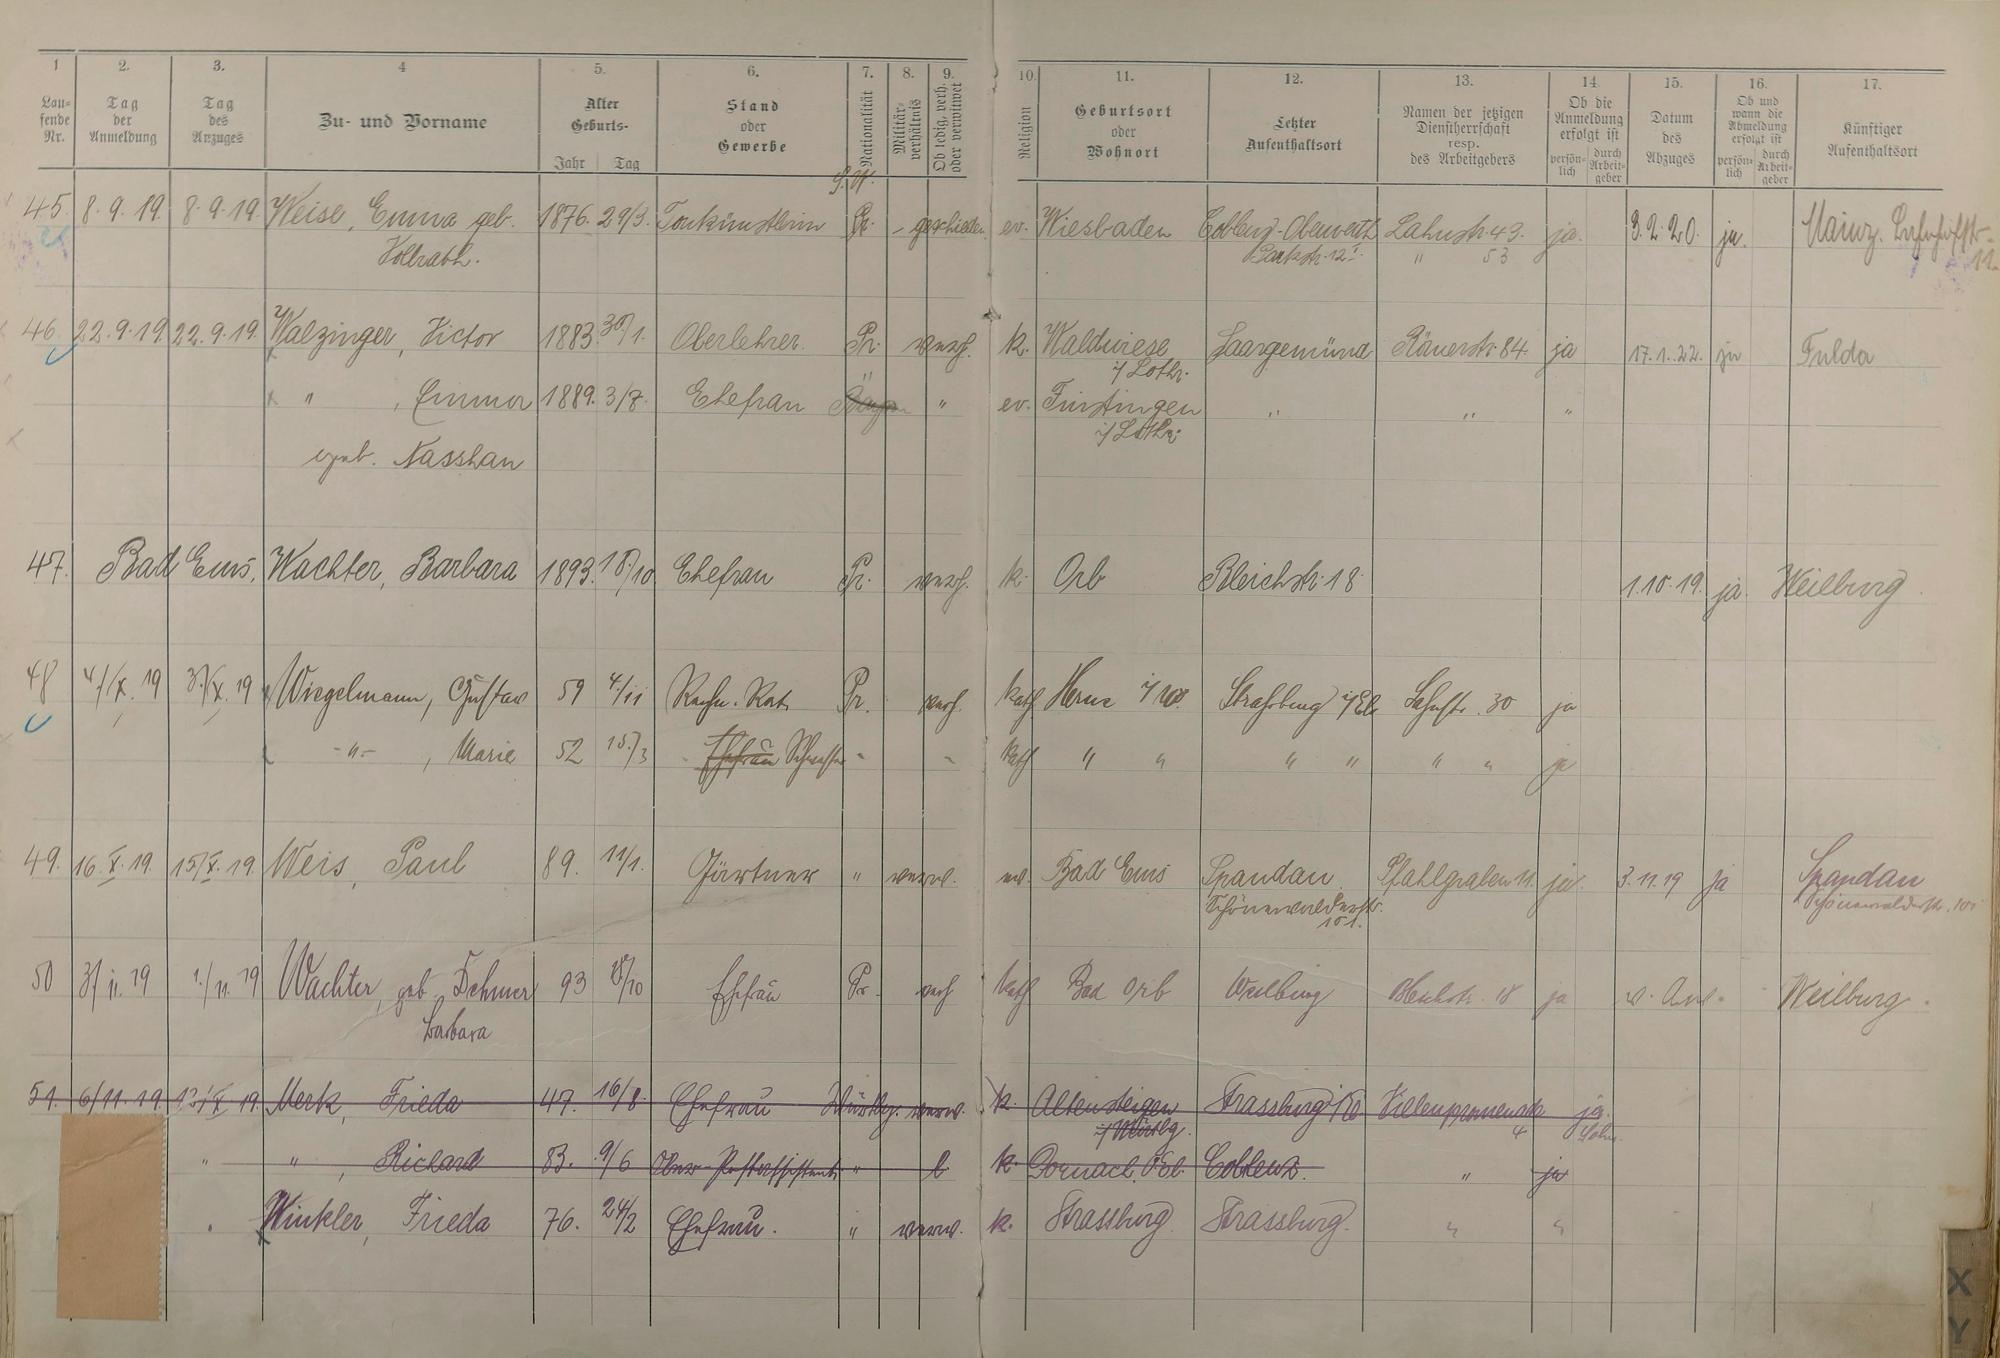 1 2. 3. 4 5. 6. 7. 8. 9. 10. 11. 12. 13. 14. 15. 16. 17.
Lau-
fende
Nr.
Tag
der
Anmeldung
Tag
des
Anzuges
Zu- und Vorname
Alter
Geburts-
Jahr Tag
Stand
oder
Gewerbe
Nationalität
Militär-
verhältnis
Ob ledig, verh.
oder verwitwet
Religion
Geburtsort
oder
Wohnort
Letzter
Aufenthaltsort
Namen der jetzigen
Dienstherrschaft
resp.
des Arbeitgebers
Ob die
Anmeldung
erfolgt ist
persön-
lich
durch
Arbeit-
geber
Datum
des
Abzuges
Ob und
wann die
Abmeldung
erfolgt ist
persön-
lich
durch
Arbeit-
geber
Künftiger
Aufenthaltsort
45. 8.9.19. 8.9.19. Weise, Emma geb. 1876. 29/3. Tonkünstlerin Pr. - geschieden. ev. Wiesbaden Coblenz-Oberwerth Lahnstr. 43. ja. 3.2.20. ja. Mainz. Bahnhofstr.
Vollrath. Parkstr. 12 I. " 53 11.
46. 22.9.19. 22.9.19. Walzinger, Victor 1883. 30/1. Oberlehrer. Pr. verh. k. Waldwiese Saargemünd Römerstr. 84. ja 17.1.22. ja Fulda
i/Lothr.
" , Emma 1889. 3/8. Ehefrau " " ev. Finstingen " " "
i/Lothr.
geb. Nasshan
47. Bad Ems. Wachter, Barbara 1893. 18/10 Ehefrau Pr. verh. k. Orb Bleichstr. 18. 1.10.19. ja. Weilburg.
48 4/X. 19 3/X. 19 Wiegelmann, Gustav 59 4/11 Rechn. Rat Pr. verh. kath Herne i/W. Strassburg i/Els Lahnstr. 30 ja
-"- , Marie 52 15/3 Ehefrau Schwester " - kath " " " " " " ja
49. 16.X.19. 15/X.19. Weis, Paul 89. 11/1. Gärtner " verw. ev. Bad Ems Spandau Pfahlgraben 11. ja. 3.11.19 ja Spandau
Schönewalderstr. Schönewalderstr. 101
101.
50 3/11.19 1./11.19 Wachter, geb. Dehmer 93 18/10 Ehefrau Pr. verh kath Bad Orb Weilburg Bleichstr. 18 ja Weilburg.
Barbara
51. 6/11.19. 13/X 19. Merk, Frieda 47. 16/8. Ehefrau Württbg. verw. k. Altensteigen Strassburg i/E Villenpromenade ja.
i/Württbg. 4
" " , Richard 83. 9/6 Ober-Postassistent " l. k. Dornach i/Els. Coblenz. " ja
" Winkler, Frieda 76. 24/2 Ehefrau. " verw. k. Strassburg Strassburg. " "
X
Y